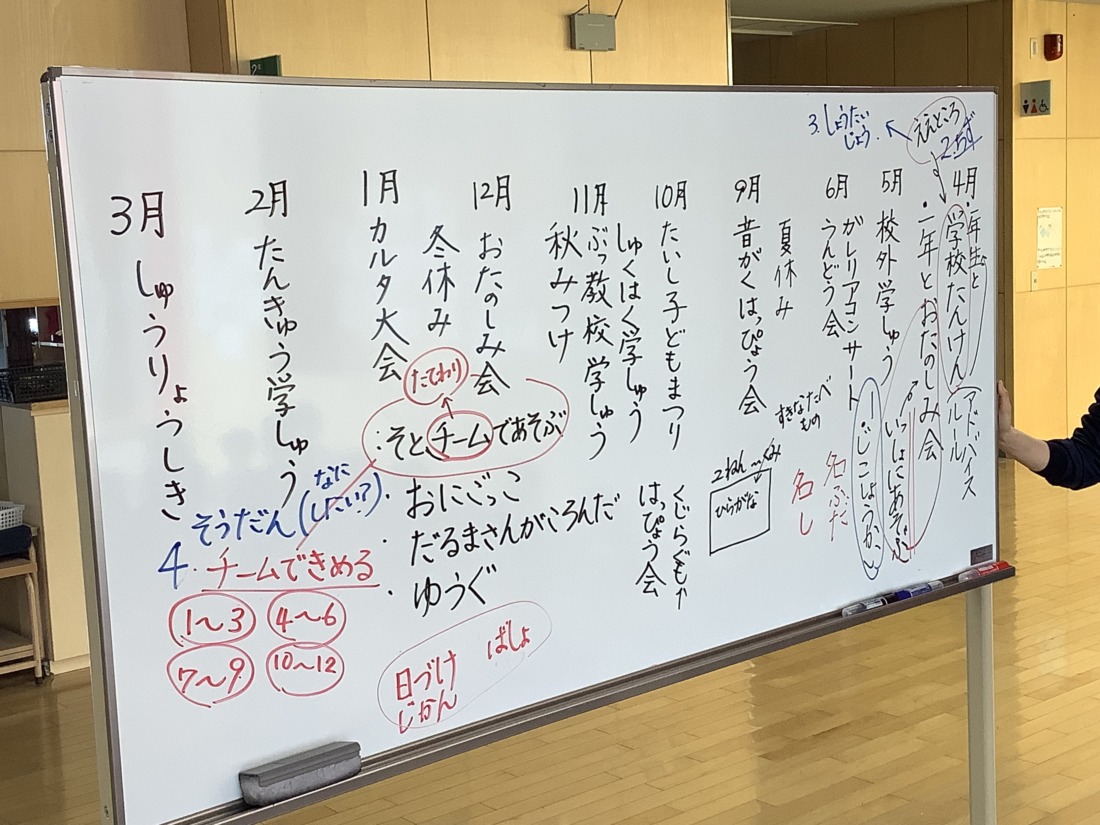 ええところ
2.ちず
3.しょうたい
じょう.
4月
・一年生と
学校たんけん
アドバイス
ルール
・一年とおたのしみ会
いっしょにあそぶ
5月
校外学しゅう
1.じこしょうかい
6月
ガレリアコンサート
うんどう会
名ふだ
名し
すきなたべ
もの
夏休み
9月
音がくはっぴょう会
2ねん〜くみ
ひらがな
10月
たいし子どもまつり
しゅくはく学しゅう
くじらぐもが
はっぴょう会
11月
ぶっ教校学しゅう
秋みつけ
12月
おたのしみ会
冬休み
1月
カルタ大会
たてわり
・そとチームであそぶ
・おにごっこ
・だるまさんがころんだ
・ゆうぐ
日づけ ばしょ
じかん
2月
たんきゅう学しゅう
3月
しゅうりょうしき
そうだん(なに
したい?)
4.チームできめる
1〜3 4〜6
7〜9 10〜12